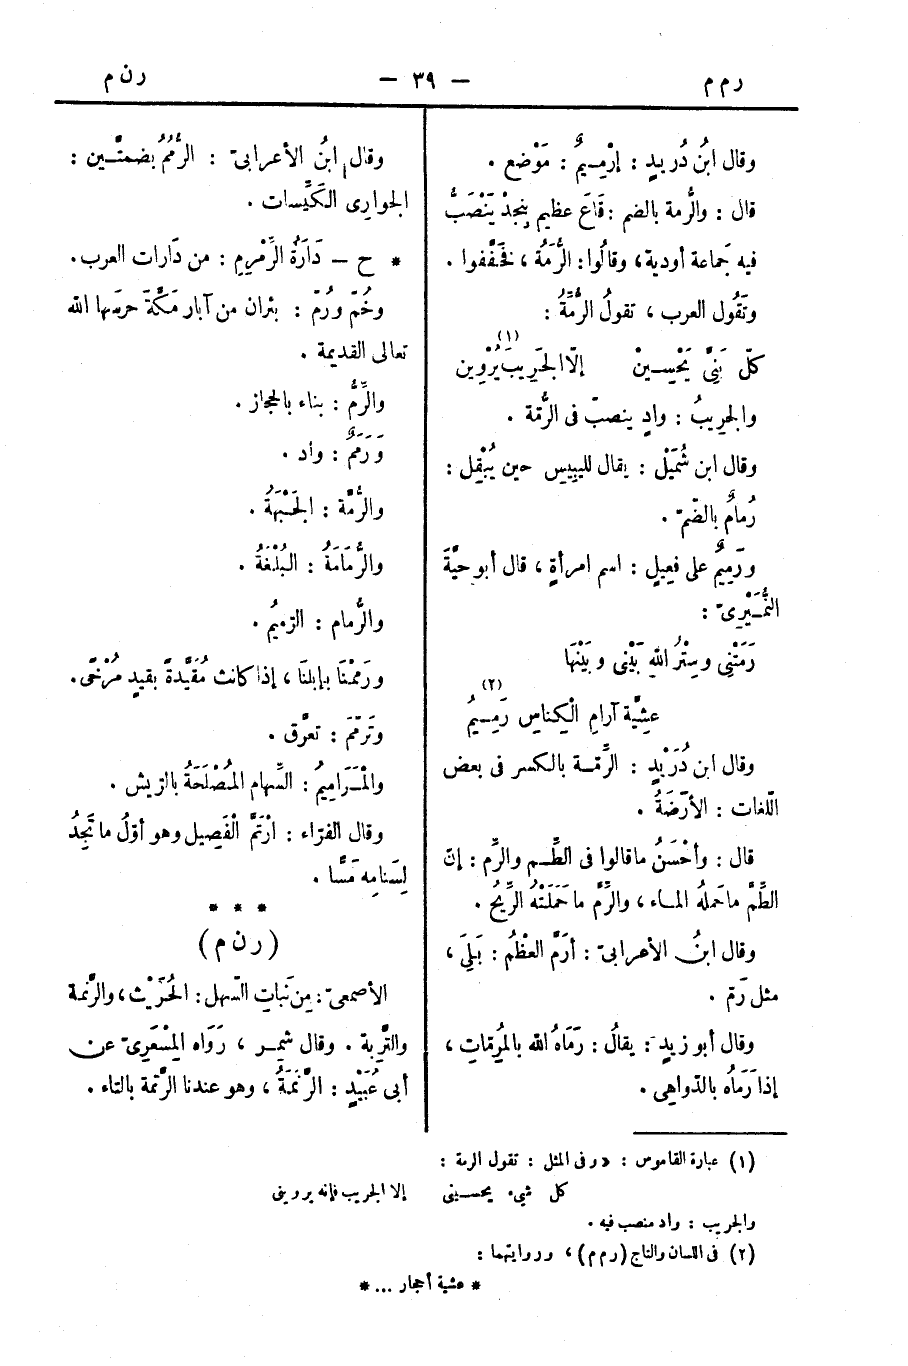 رمم — ٣٩ — رنم
وقال ابنُ دُرَيدٍ : إرْمِيمٌ : مَوْضع .
قال : والرُّمة بالضم : قَاعَ عظيم بِنجدْ يَنْصَبُّ
فيه جَماعة أودية، وقالُوا: الرُّمَةُ، فخَفَّفوا .
وتَقُول العرب ، تقولُ الرُّمَّةُ :
كلّ بَنِىَّ يَحْسِينْ إلّا الجَرِيبَ يُرْوِين (١)
والجَرِيبُ : وادٍ ينصبّ فى الرُّمّة .
وقال ابن شُمَيْل : يقال لليَبِيسِ حين يُبْقِل :
رُمامٌ بالضّمّ .
ورَمِيمٌ على فعِيلٍ : اسم امرأةٍ ، قال أبو حيَّةَ
النُّمَيْرِىّ :
رَمَتْنِى وسِتْرُ اللهِ بَيْنِى وبَيْنَهَا
عشِيَّة آرامِ الْكِناسِ رَمِيمُ (٢)
وقال ابن دُرَيْدٍ : الرِّمّة بالكسر فى بعض
اللّغات : الأَرَضَةُ .
قال : وأحْسَنُ ماقالوا فى الطِّم والرِّم : إنّ
الطِّمَّ ماحَملهُ الماء ، والرِّمَّ ماحَمَلَتْهُ الرِّيحُ .
وقال ابنُ الأعرابىّ : أرَمَّ العظْمُ : بَلِىَ ،
مثل رَمّ .
وقال أبو زيدٍ : يقالُ : رَمَاهُ الله بالمُرِمّاتِ ،
إذا رَمَاه بالدّواهِى .
وقال ابنُ الأعرابىّ : الرُّمُمُ بضمتَّين :
الجوارِى الكَيِّسات .
* ح – دَارَةُ الرِّمْرِمِ : من دَارات العرب.
وخُمّ ورُمّ : بئران من آبار مَكَّةَ حرسها الله
تعالى القديمة .
والرِّمُّ : بناء بالحجاز .
وَرَمَمٌ : واد .
والرُّمَّة : الجَبْهَةُ .
والرُّمَامَةُ : البُلْغَةُ .
والرُّمام : الرميمُ .
ورَمَمْنَا بإبلنَا ، إذا كانت مُقَيَّدةً بقيدٍ مُرْخًى.
وتَرمّمَ : تعرَّق .
والْمَرَامِيمُ : السِّهام المُصْلَحَةُ بالرِّيش .
وقال الفرّاء : ارْتَمَّ الْفَصِيل وهو أوّلُ ما تَجِدُ
لِسَنامِه مَسًّا .
* * *
(رنم)
الأصمعىّ: مِن نَباتِ السّهل: الحُرْبُث، والرَّنَمة
والتَّرِبة . وقال شِمِر ، رَوَاه المِسْعَرِىّ عن
أبى عُبَيْدٍ : الرَّنَمَةُ ، وهو عندنا الرَّتمة بالتاء .
(١) عبارة القاموس : «وفى المثل : تقول الرمة :
كل شىء يحسينى إلا الجريب فإنه يروينى
والجريب : واد منصب فيه .
(٢) فى اللسان والتاج (رمم)، وروايتهما :
* عشية أحجار ... *